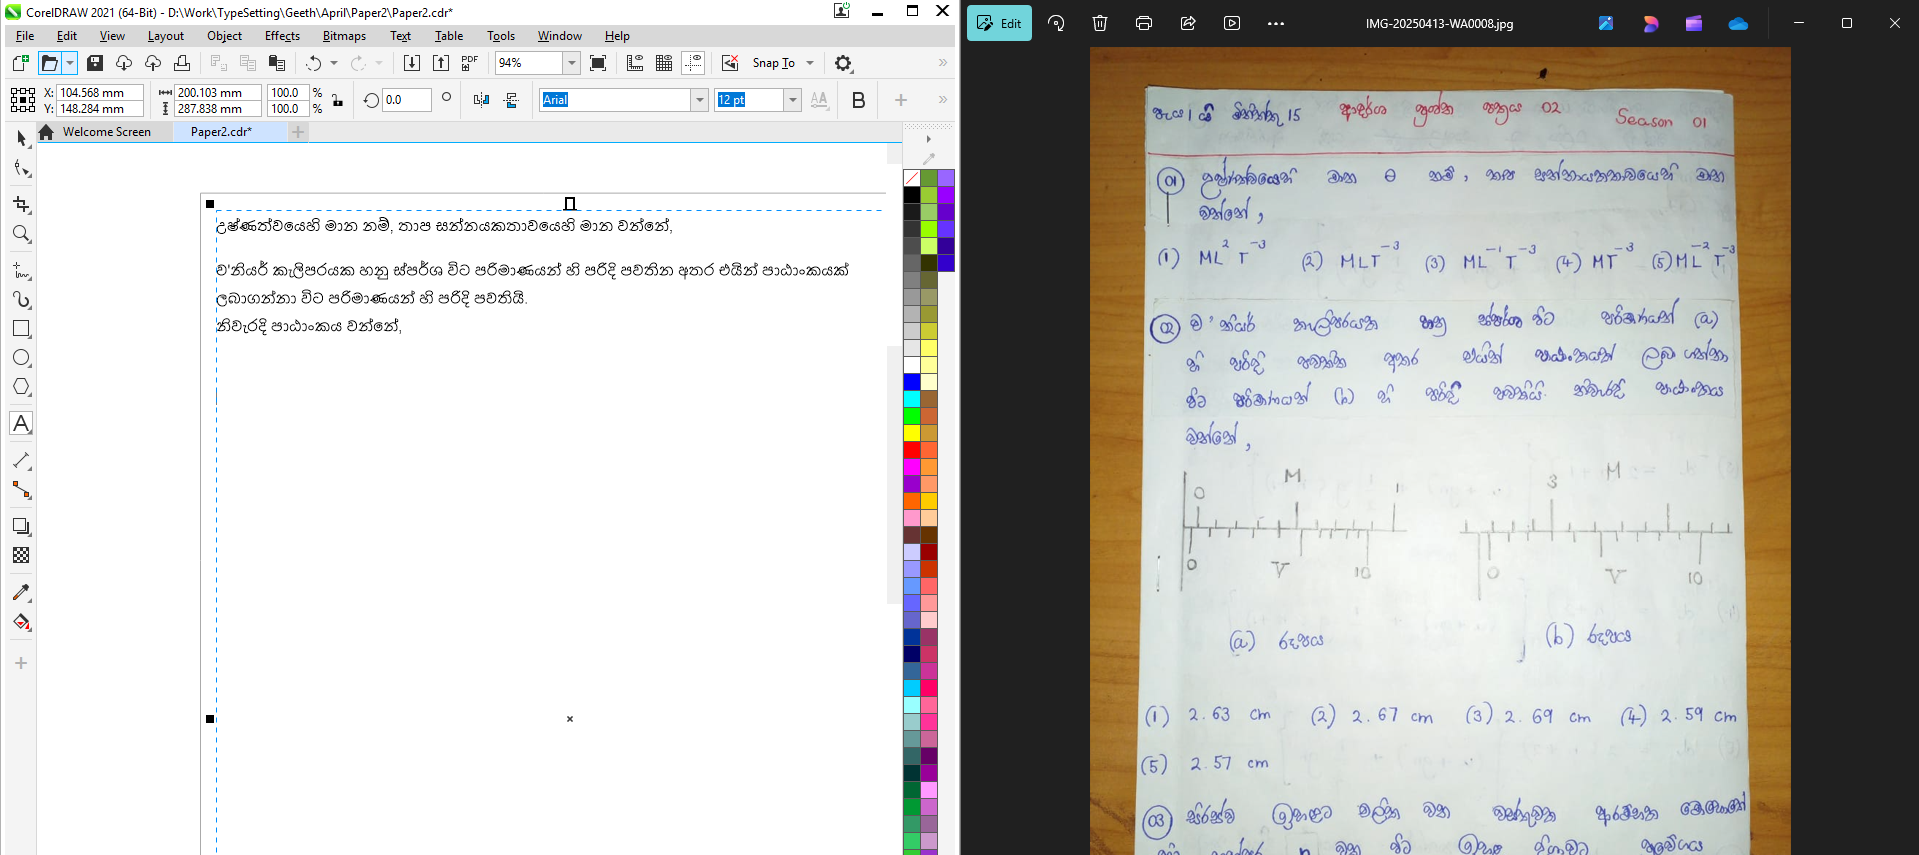 CorelDRAW 2021 (64-Bit) - D:\Work\TypeSetting\Geeth\April\Paper2\Paper2.cdr*
File Edit View Layout Object Effects Bitmaps Text Table Tools Window Help
PDF 94% Snap To
X: 104.568 mm 200.103 mm 100.0 % 0.0 Arial 12 pt AA B
Y: 148.284 mm 287.838 mm 100.0 %
Welcome Screen Paper2.cdr*
උෂ්ණත්වයෙහි මාන නම්, තාප සන්නයකතාවයෙහි මාන වන්නේ,
ව'නියර් කැලිපරයක හනු ස්පර්ශ විට පරිමාණයන් හි පරිදි පවතින අතර එයින් පාඨාංකයක්
ලබාගන්නා විට පරිමාණයන් හි පරිදි පවතියි.
නිවැරදි පාඨාංකය වන්නේ,
Edit IMG-20250413-WA0008.jpg
පැය 1 යි මිනිත්තු 15 ආදර්ශ ප්‍රශ්න පත්‍රය 02 Season 01
01 උෂ්ණත්වයෙහි මාන θ නම්, තාප සන්නායකතාවයෙහි මාන
වන්නේ,
(1) ML² T⁻³ (2) MLT⁻³ (3) ML⁻¹ T⁻³ (4) MT⁻³ (5) ML⁻² T⁻³
02 ව'නියර් කැලිපරයක හනු ස්පර්ශ විට පරිමාණයන් (a)
හි පරිදි පවතින අතර එයින් පාඨාංකයක් ලබා ගන්නා
විට පරිමාණයන් (b) හි පරිදි පවතියි. නිවැරදි පාඨාංකය
වන්නේ,
M 3 M
0 1
0 V 10 0 V 10
(a) රූපය (b) රූපය
(1) 2.63 cm (2) 2.67 cm (3) 2.69 cm (4) 2.59 cm
(5) 2.57 cm
03 සිරස්ව ඉහළට චලිත වන වස්තුවක ආරම්භක